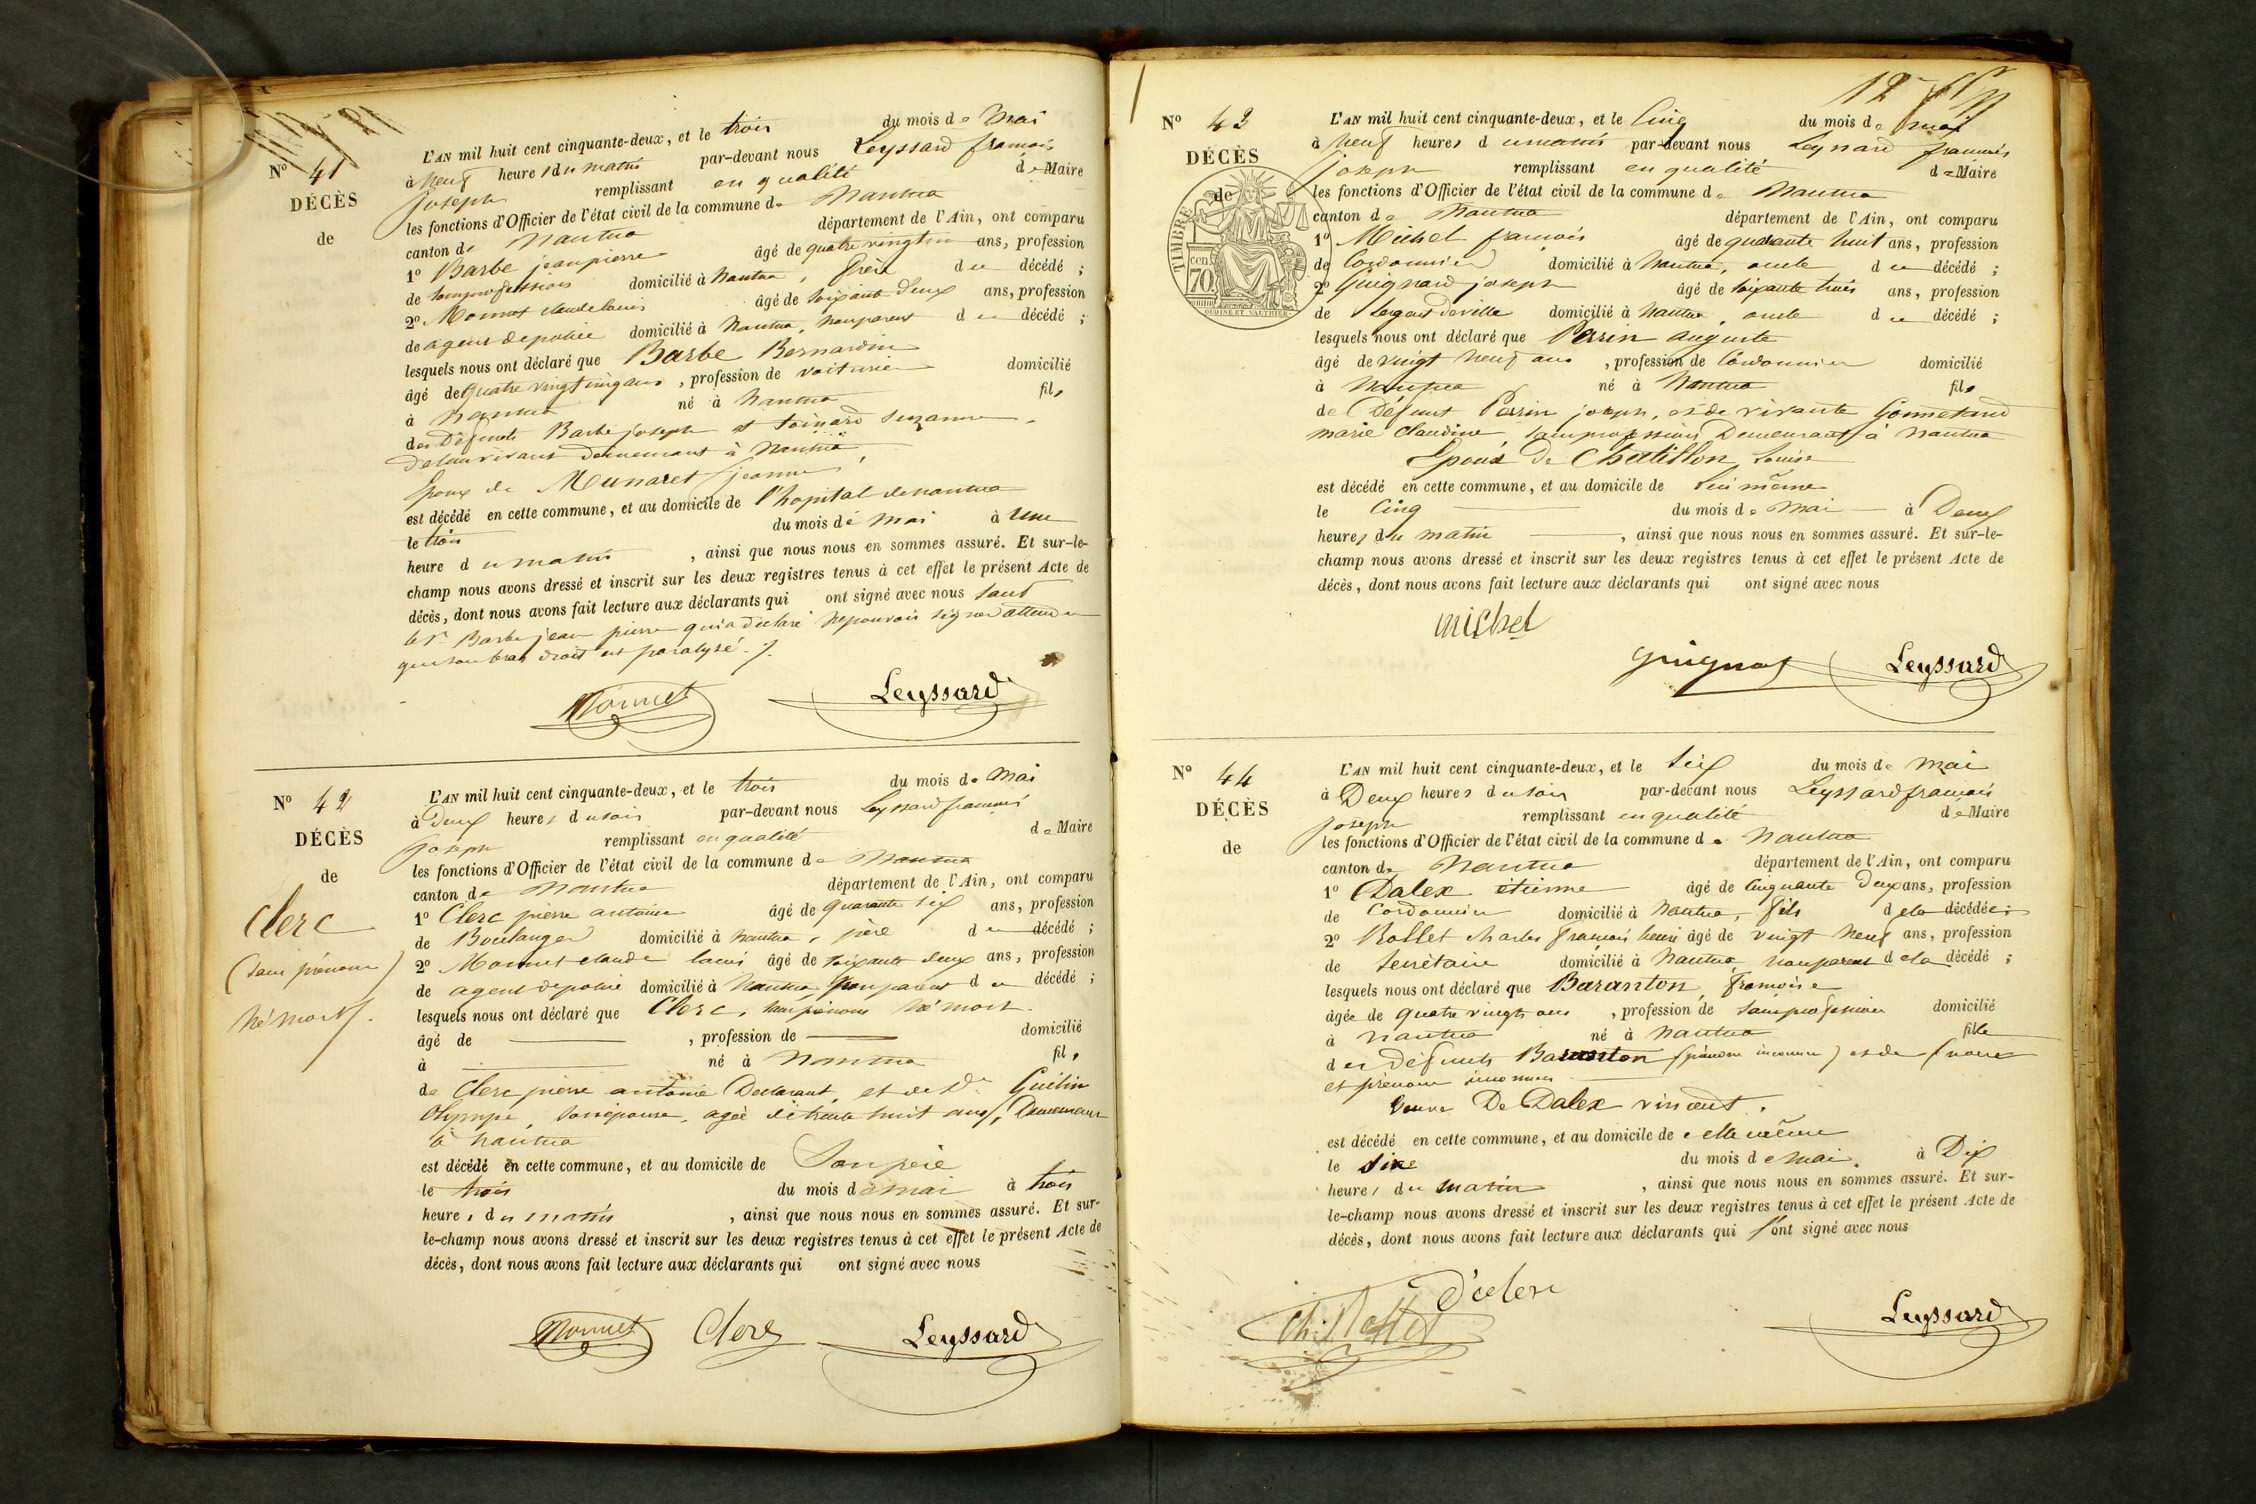 N° 41
DÉCÈS
de
L'AN mil huit cent cinquante-deux, et le trois du mois de Mai
à neuf heures du matin par-devant nous Leyssard françois
joseph remplissant en qualité de Maire
les fonctions d'Officier de l'état civil de la commune de Nantua
canton de Nantua département de l'Ain, ont comparu
1° Barbe jean pierre âgé de quatre vingt un ans, profession
de sans profession domicilié à Nantua, frère du décédé ;
2° Monnet claude louis âgé de soixante deux ans, profession
de agent de police domicilié à Nantua, non parent du décédé ;
lesquels nous ont déclaré que Barbe Bernardin
âgé de quatre vingt cinq ans, profession de voiturier domicilié
à Nantua né à Nantua fils
des Défunts Barbe joseph et toinard suzanne
de leur vivant demeurant à Nantua,
Epoux de Munaret jeanne,
est décédé en cette commune, et au domicile de l'hopital de nantua
le trois du mois de Mai à une
heure du matin, ainsi que nous nous en sommes assuré. Et sur-le-
champ nous avons dressé et inscrit sur les deux registres tenus à cet effet le présent Acte de
décès, dont nous avons fait lecture aux déclarants qui ont signé avec nous sauf
le Sr Barbe jean pierre qui a déclaré ne pouvoir signer attendu
que son bras droit est paralysé ./.
Monnet Leyssard
N° 42
DÉCÈS
de
Clerc
(sans prénom)
Né mort.
L'AN mil huit cent cinquante-deux, et le trois du mois de Mai
à Deux heures du soir par-devant nous Leyssard françois
joseph remplissant en qualité de Maire
les fonctions d'Officier de l'état civil de la commune de Nantua
canton de Nantua département de l'Ain, ont comparu
1° Clerc pierre antoine âgé de quarante six ans, profession
de Boulanger domicilié à Nantua, père du décédé ;
2° Monnet claude louis âgé de soixante deux ans, profession
de agent de police domicilié à Nantua, non parent du décédé ;
lesquels nous ont déclaré que Clerc, sans prénom Né mort.
âgé de , profession de domicilié
à né à Nantua fils
de Clerc pierre antoine Déclarant, et de De Guélin
Olympe, son épouse, agée de trente huit ans, Demeurant
à Nantua
est décédé en cette commune, et au domicile de Son père
le trois du mois de mai à trois
heures du matin, ainsi que nous nous en sommes assuré. Et sur-
le-champ nous avons dressé et inscrit sur les deux registres tenus à cet effet le présent Acte de
décès, dont nous avons fait lecture aux déclarants qui ont signé avec nous
Monnet Clerc Leyssard
12
N° 43
DÉCÈS
de
TIMBRE
70
OUDINÉ ET GAUTHIER
L'AN mil huit cent cinquante-deux, et le Cinq du mois de mai
à Neuf heures du matin par-devant nous Leyssard françois
joseph remplissant en qualité de Maire
les fonctions d'Officier de l'état civil de la commune de Nantua
canton de Nantua département de l'Ain, ont comparu
1° Michel françois âgé de quarante huit ans, profession
de Cordonnier domicilié à Nantua, oncle du décédé ;
2° Guignard joseph âgé de soixante trois ans, profession
de Sergent de ville domicilié à Nantua, oncle du décédé ;
lesquels nous ont déclaré que Perrin auguste
âgé de vingt neuf ans, profession de Cordonnier domicilié
à Nantua né à Nantua fils
de Défunt Perrin joseph, et de vivante
marie claudine, sans profession Demeurant à Nantua
Epoux De Chatillon Louise
est décédé en cette commune, et au domicile de lui même
le Cinq du mois de Mai à Deux
heures du matin, ainsi que nous nous en sommes assuré. Et sur-le-
champ nous avons dressé et inscrit sur les deux registres tenus à cet effet le présent Acte de
décès, dont nous avons fait lecture aux déclarants qui ont signé avec nous
Michel
Guignard Leyssard
N° 44
DÉCÈS
de
L'AN mil huit cent cinquante-deux, et le Six du mois de Mai
à Deux heures du soir par-devant nous Leyssard françois
joseph remplissant en qualité de Maire
les fonctions d'Officier de l'état civil de la commune de Nantua
canton de Nantua département de l'Ain, ont comparu
1° Dalex étienne âgé de cinquante Deux ans, profession
de Cordonnier domicilié à Nantua, fils de la décédée ;
2° Rollet charles françois henri âgé de vingt Neuf ans, profession
de Secrétaire domicilié à Nantua, non parent de la décédé ;
lesquels nous ont déclaré que Baranton, françoise
âgée de quatre vingts ans, profession de sans profession domicilié
à Nantua né à Nantua fille
des Défunts Baranton (prénom inconnu) et de (nom
et prénom inconnus
Veuve De Dalex vincent.
est décédé en cette commune, et au domicile de elle même
le Six du mois de Mai, à Dix
heures du matin, ainsi que nous nous en sommes assuré. Et sur-
le-champ nous avons dressé et inscrit sur les deux registres tenus à cet effet le présent Acte de
décès, dont nous avons fait lecture aux déclarants qui l'ont signé avec nous
Leyssard